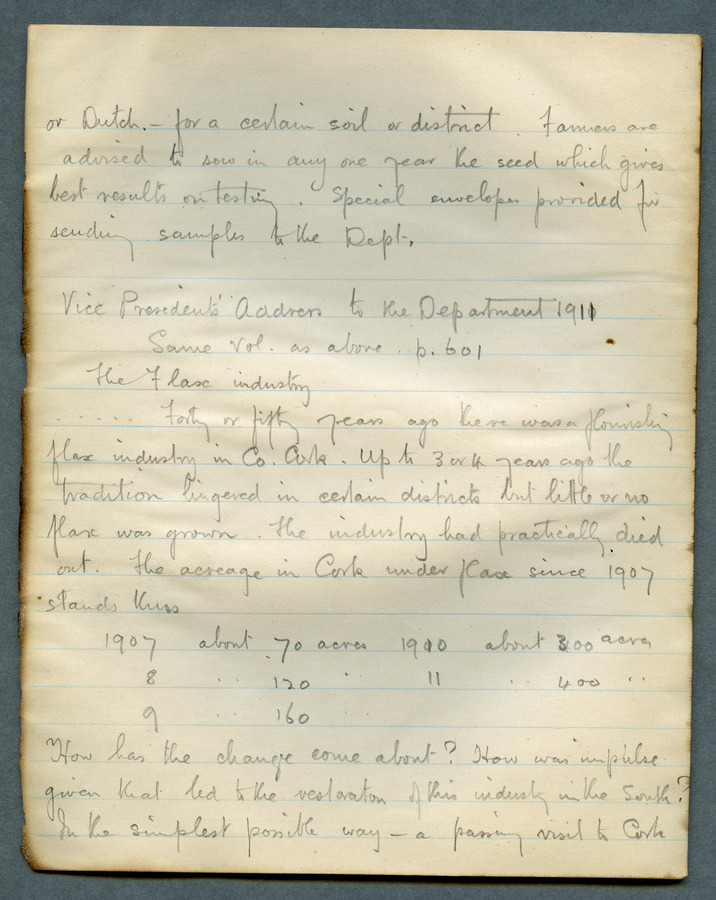 or Dutch. – for a certain soil or district. Farmers are
advised to sow in any one year the seed which gives
best results on testing. Special envelopes provided for
sending samples to the Dept.
Vice Presidents' Address to the Department 1911
Same Vol. as above. p. 601
The Flax industry
...... Forty or fifty years ago there was a flourishing
flax industry in Co. Cork. Up to 3 or 4 years ago the
tradition lingered in certain districts but little or no
flax was grown. The industry had practically died
out. The acreage in Cork under flax since 1907
stands thus
1907 about 70 acres 1910 about 300 acres
8 .. 120 .. 11 .. 400 ..
9 .. 160 ..
How has the change come about? How was impulse
given that led to the restoration of this industry in the South?
In the simplest possible way – a passing visit to Cork